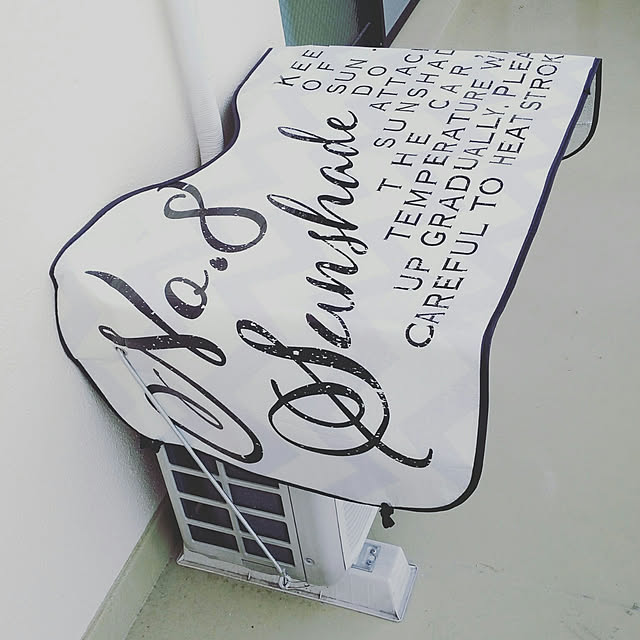 No.8
Sunshade
KEE
OF
SUN
DO
ATTAC
T SUNSHAD
THE CAR.
TEMPERATURE WI
UP GRADUALLY. PLEA
CAREFUL TO HEATSTROK